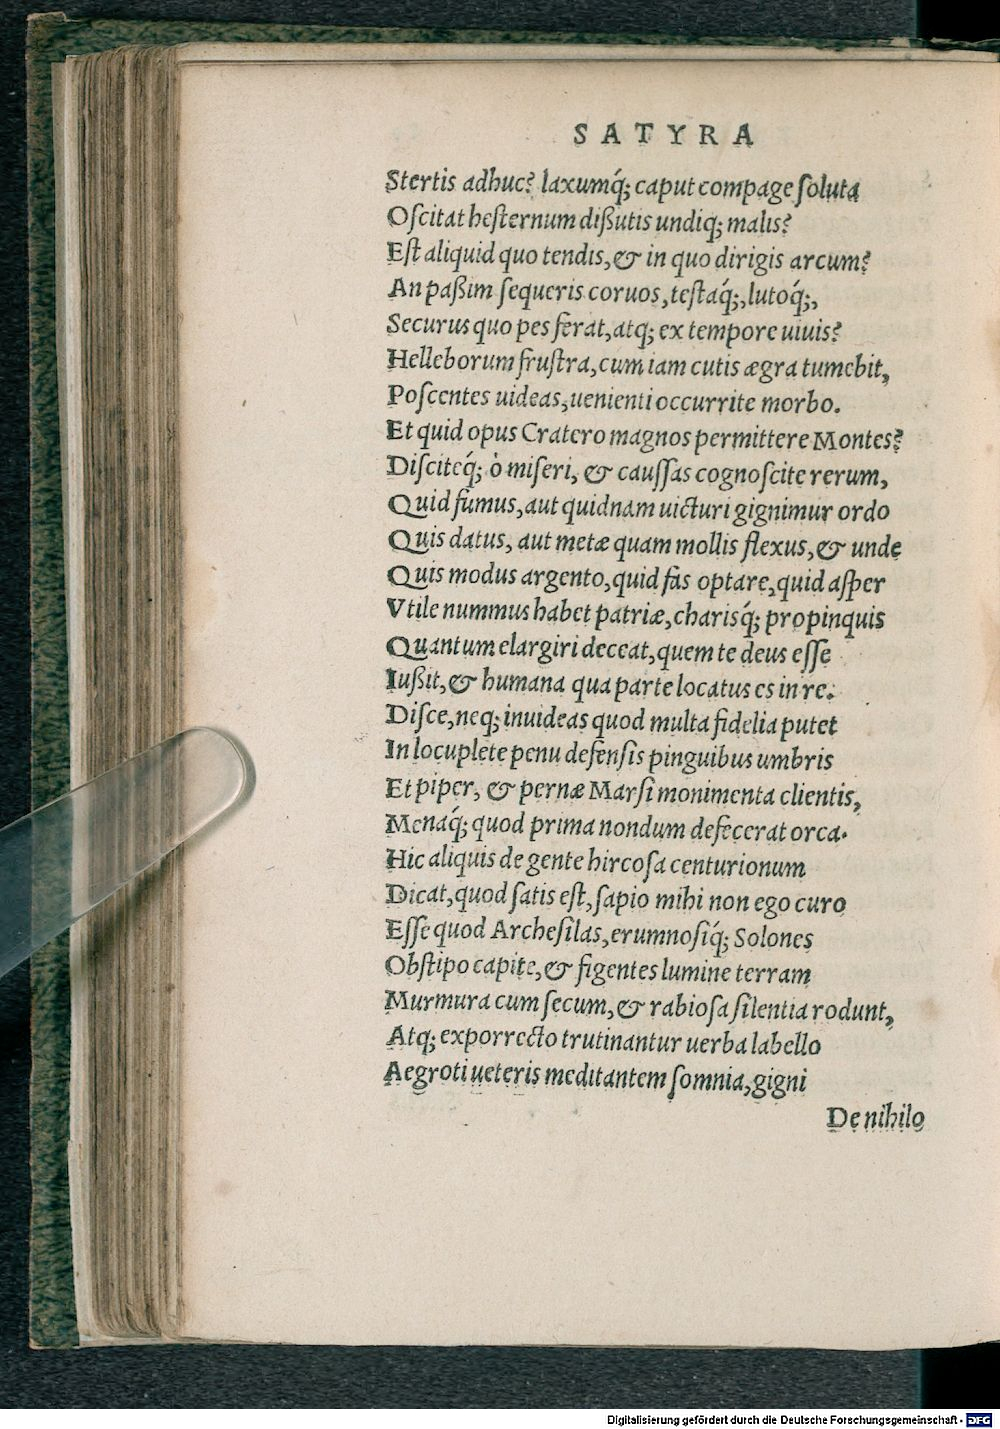 SATYRA
Stertis adhuc? laxumq́; caput compage ſoluta
Oſcitat heſternum dißutis undiq; malis?
Eſt aliquid quo tendis, & in quo dirigis arcum?
An paßim ſequeris coruos, teſtaq́;, lutoq́;,
Securus quo pes ferat, atq; ex tempore uiuis?
Helleborum fruſtra, cum iam cutis ægra tumebit,
Poſcentes uideas, uenienti occurrite morbo.
Et quid opus Cratero magnos permittere Montes?
Diſciteq́; ò miſeri, & cauſſas cognoſcite rerum,
Quid ſumus, aut quidnam uicturi gignimur ordo
Quis datus, aut metæ quam mollis flexus, & unde
Quis modus argento, quid fas optare, quid aſper
Vtile nummus habet patriæ, charisq́; propinquis
Quantum elargiri deceat, quem te deus eſſe
Iußit, & humana qua parte locatus es in re.
Diſce, neq; inuideas quod multa fidelia putet
In locuplete penu defenſis pinguibus umbris
Et piper, & pernæ Marſi monimenta clientis,
Menaq́; quod prima nondum defecerat orca.
Hic aliquis de gente hircoſa centurionum
Dicat, quod ſatis eſt, ſapio mihi non ego curo
Eſſe quod Archeſilas, erumnoſiq́; Solones
Obſtipo capite, & figentes lumine terram
Murmura cum ſecum, & rabioſa ſilentia rodunt,
Atq; exporrecto trutinantur uerba labello
Aegroti ueteris meditantem ſomnia, gigni
De nihilo
Digitalisierung gefördert durch die Deutsche Forschungsgemeinschaft - DFG